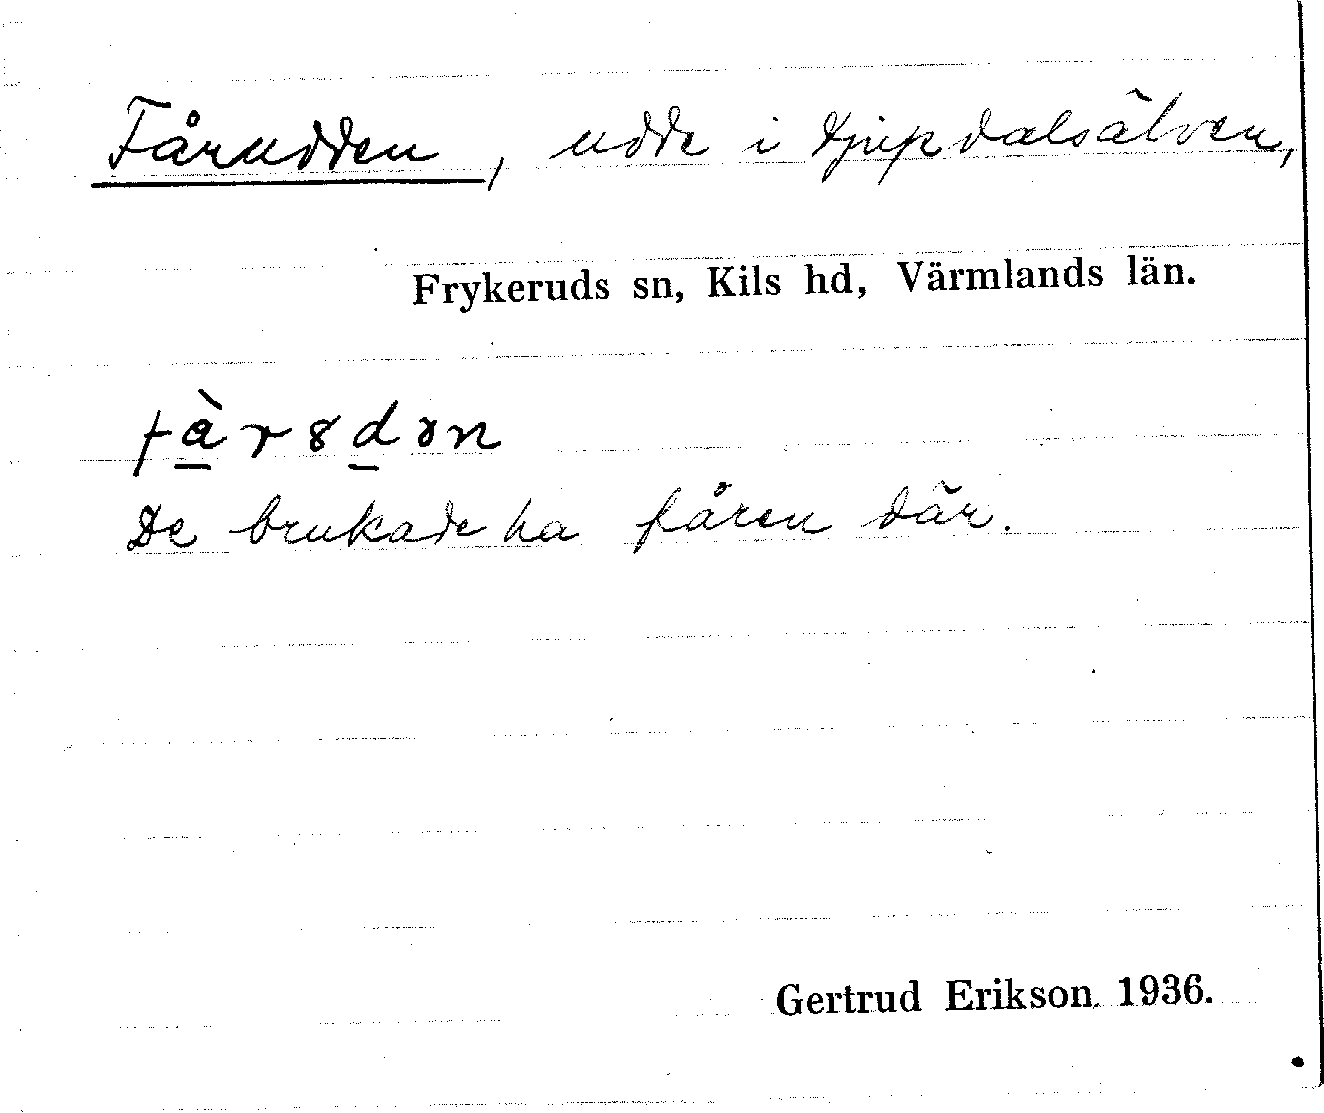 Fårudden, udde i Djupdalsälven,
Frykeruds sn, Kils hd, Värmlands län.
De brukade ha fåren där.
Gertrud Erikson 1936.